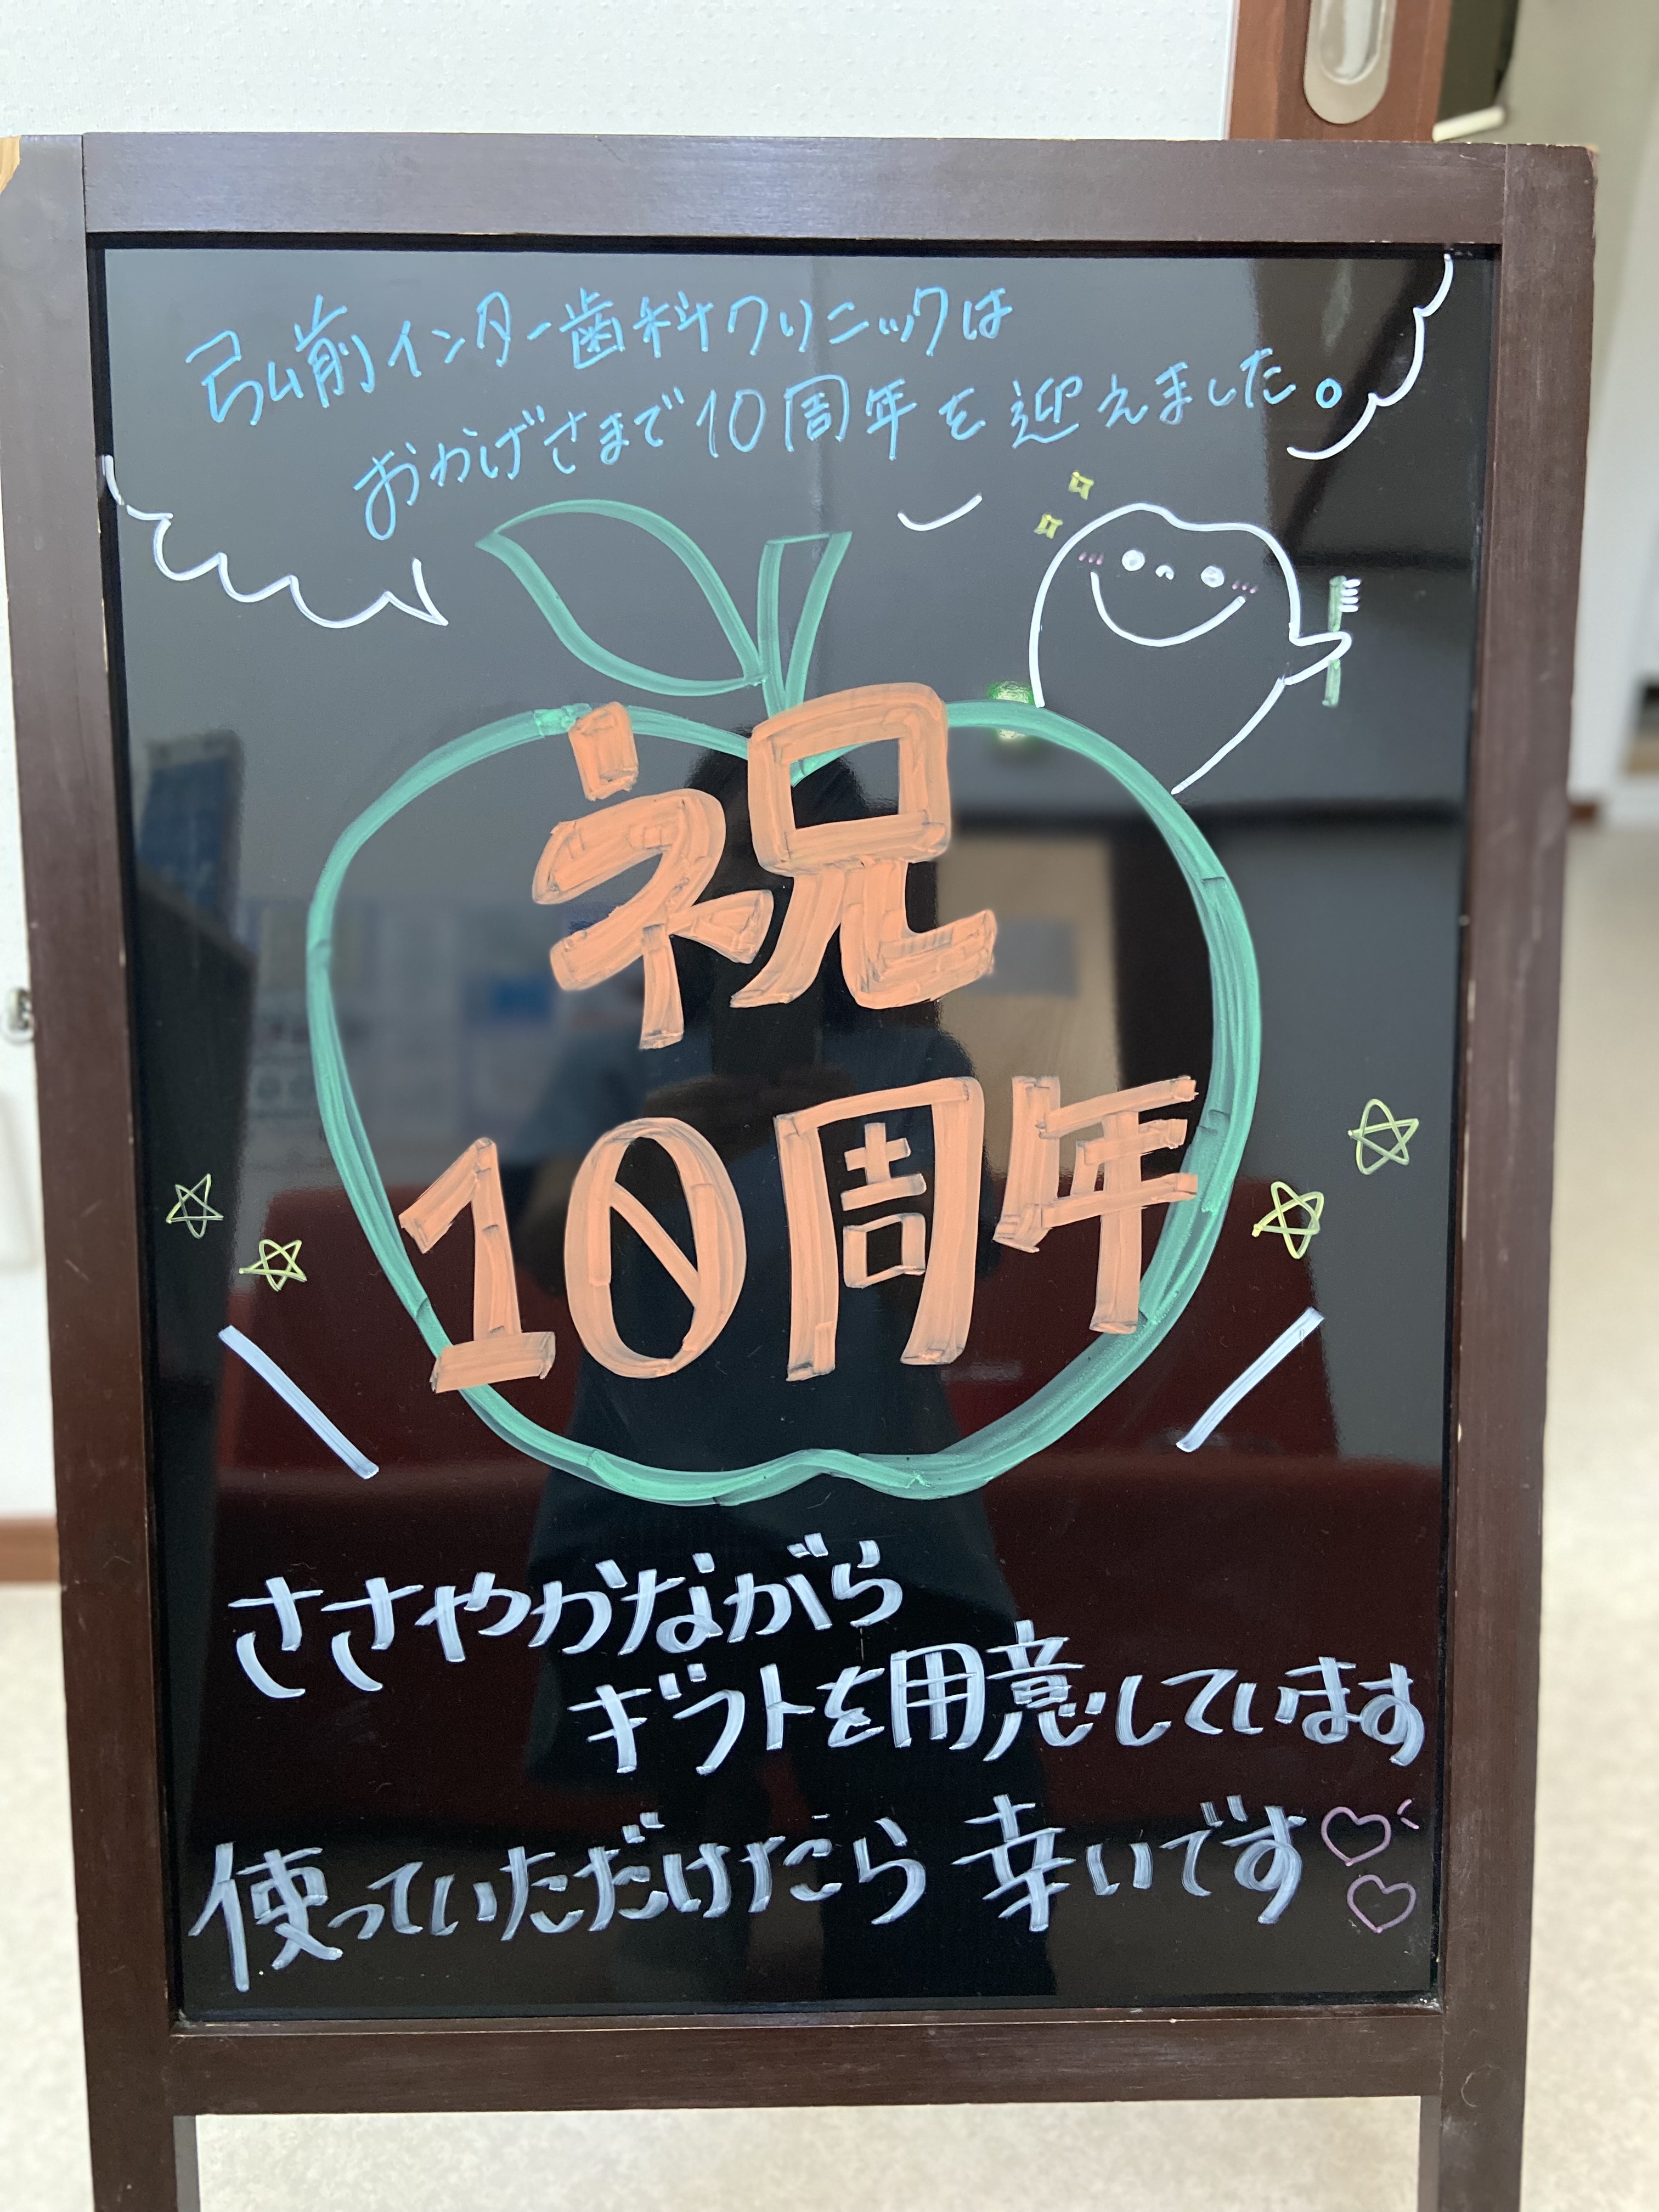 弘前インター歯科クリニックは
おかげさまで10周年を迎えました。
祝
10周年
ささやかながら
ギフトを用意しています
使っていただけたら幸いです♡♡